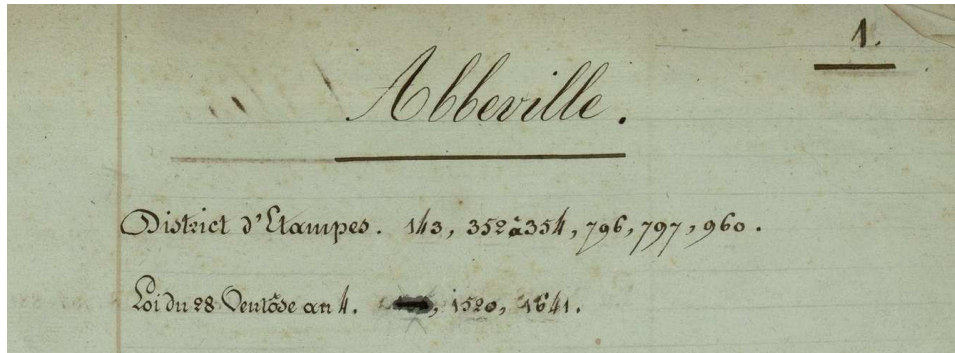 1.
Abbeville.
District d'Etampes. 143, 352 à 354, 796, 797, 960.
Loi du 28 Ventôse an 4. , 1520, 1641.